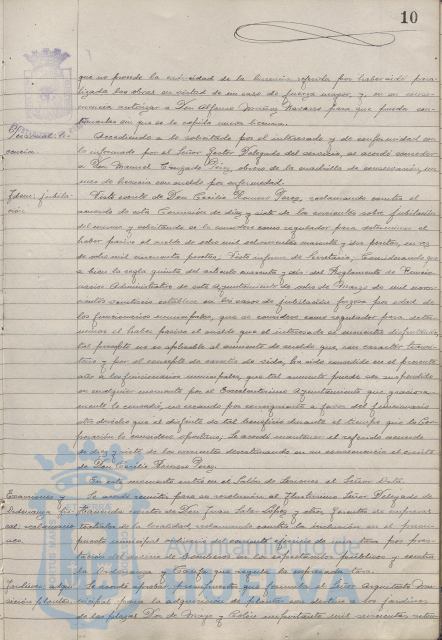 10
que no procede la caducidad de la licencia referida por haber sido para-
lizadas las obras en virtud de un caso de fuerza mayor, y, en su conse-
cuencia autorizar a Don Alfonso Muñoz Navarro para que pueda con-
tinuarlas sin que se le expida nueva licencia.
Personal: li-
cencia.
Accediendo a lo solicitado por el interesado y de conformidad con
lo informado por el Señor Gestor Delegado del servicio, se acordó conceder
a Don Manuel Pérez, obrero de la cuadrilla de conservación, un
mes de licencia con sueldo por enfermedad.
Idem: jubila-
ción.
Visto escrito de Don Cecilio Romero Pérez, reclamando contra el
acuerdo de esta Comisión de diez y siete de los corrientes sobre jubilación
del mismo y solicitando se le considere como regulador para determinar el
haber pasivo el sueldo de ocho mil seiscientas pesetas, en vez
de ocho mil cincuenta pesetas; Visto informe de Secretaría; Considerando que
si bien la regla quinta del artículo cuarenta y dos del Reglamento de Funcio-
narios Administrativos de este Ayuntamiento de ocho de Marzo de mil nove-
cientos establece en los casos de jubilación forzosa por edad de
los funcionarios municipales, que se considere como regulador para deter-
minar el haber pasivo el sueldo que el interesado se encuentre disfrutando,
tal precepto no es aplicable al aumento de sueldo que con carácter transi-
torio y por el concepto de carestía de vida, ha sido concedido en el presente
año a los funcionarios municipales, que tal aumento puede ser suspendido
en cualquier momento por el Excelentísimo Ayuntamiento que graciosa-
mente lo concedió, no creando por consiguiente a favor del funcionario
otro derecho que el disfrute de tal beneficio durante el tiempo que la Cor-
poración lo considere oportuno; Se acordó mantener el referido acuerdo
de diez y siete de los corrientes desestimando en su consecuencia el escrito
de Don Cecilio Romero Pérez.
En este momento entra en el Salón de Sesiones el Señor
Exacciones y
Ordenanza
reclamacio-
Se acordó remitir para su resolución al Ilustrísimo Señor Delegado de
Hacienda escrito de Don Juan López y otros Gerentes de empresas
teatrales de la localidad, reclamando contra la inclusión en el presu-
puesto municipal ordinario del corriente ejercicio de una tasa por pres-
tación del servicio de Bomberos a los espectáculos públicos y contra
la Ordenanza y Tarifa que regula la expresada tasa.
Jardines: adqui-
sición plantas.
Se acordó aprobar presupuesto que formula el Señor Arquitecto Mu-
nicipal para la adquisición de plantas con destino a los jardines
de las plazas Dos de Mayo y Colón importante mil seiscientas seten-
Ayuntamiento de
HUELVA